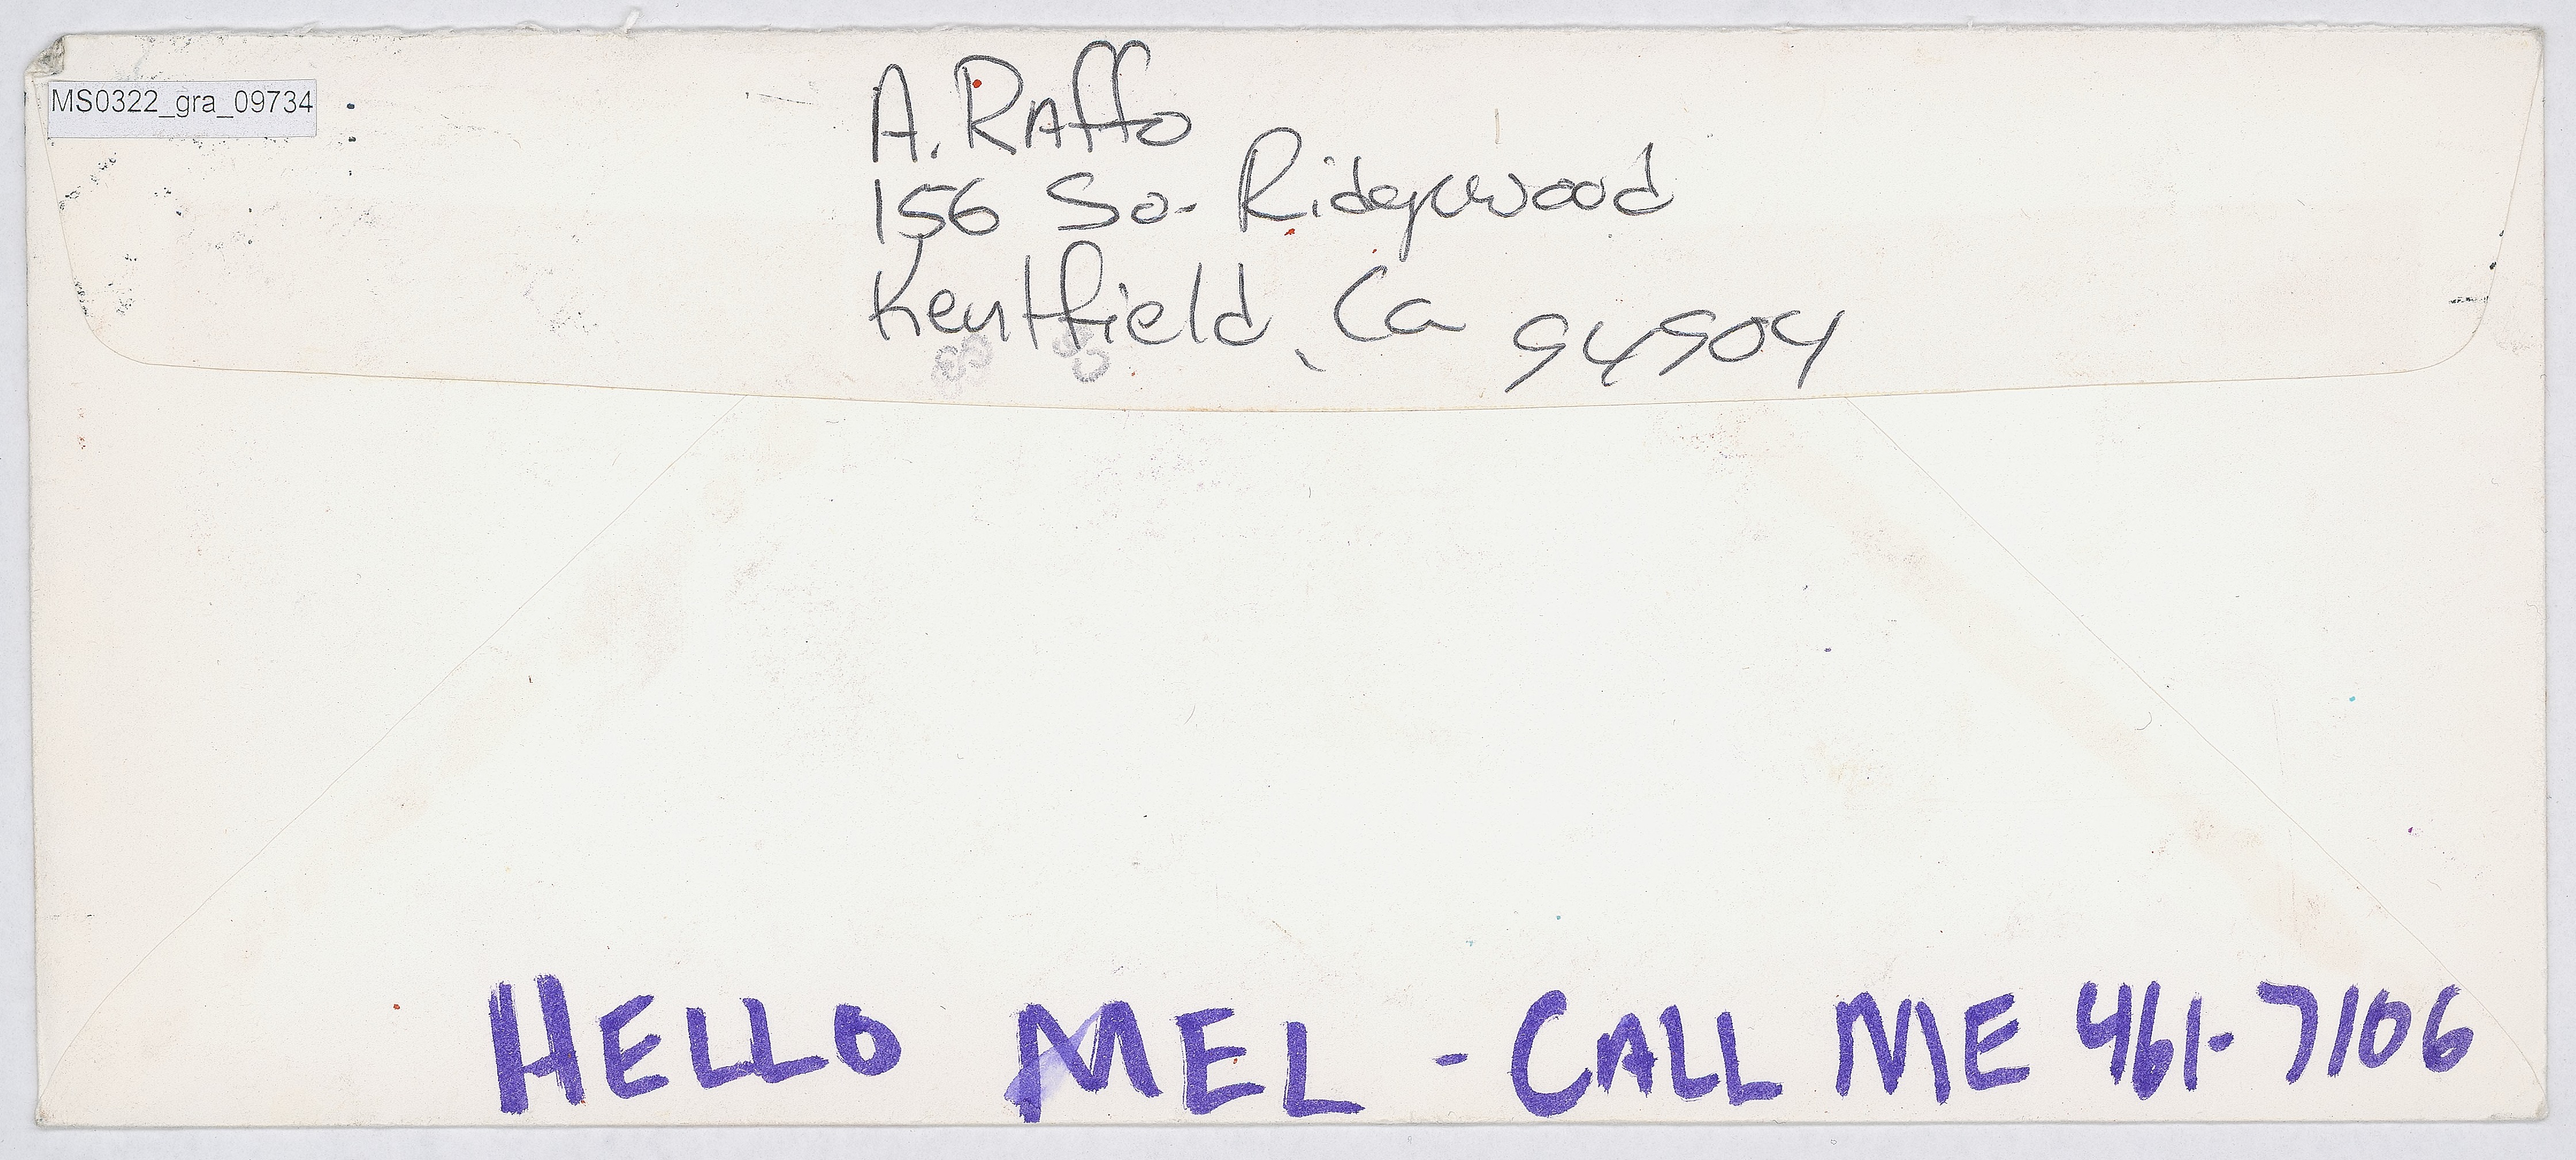 MS0322_gra_09734
A. Raffo
156 So. Ridgewood
Kentfield, Ca 94904
HELLO MEL - CALL ME 461-7106